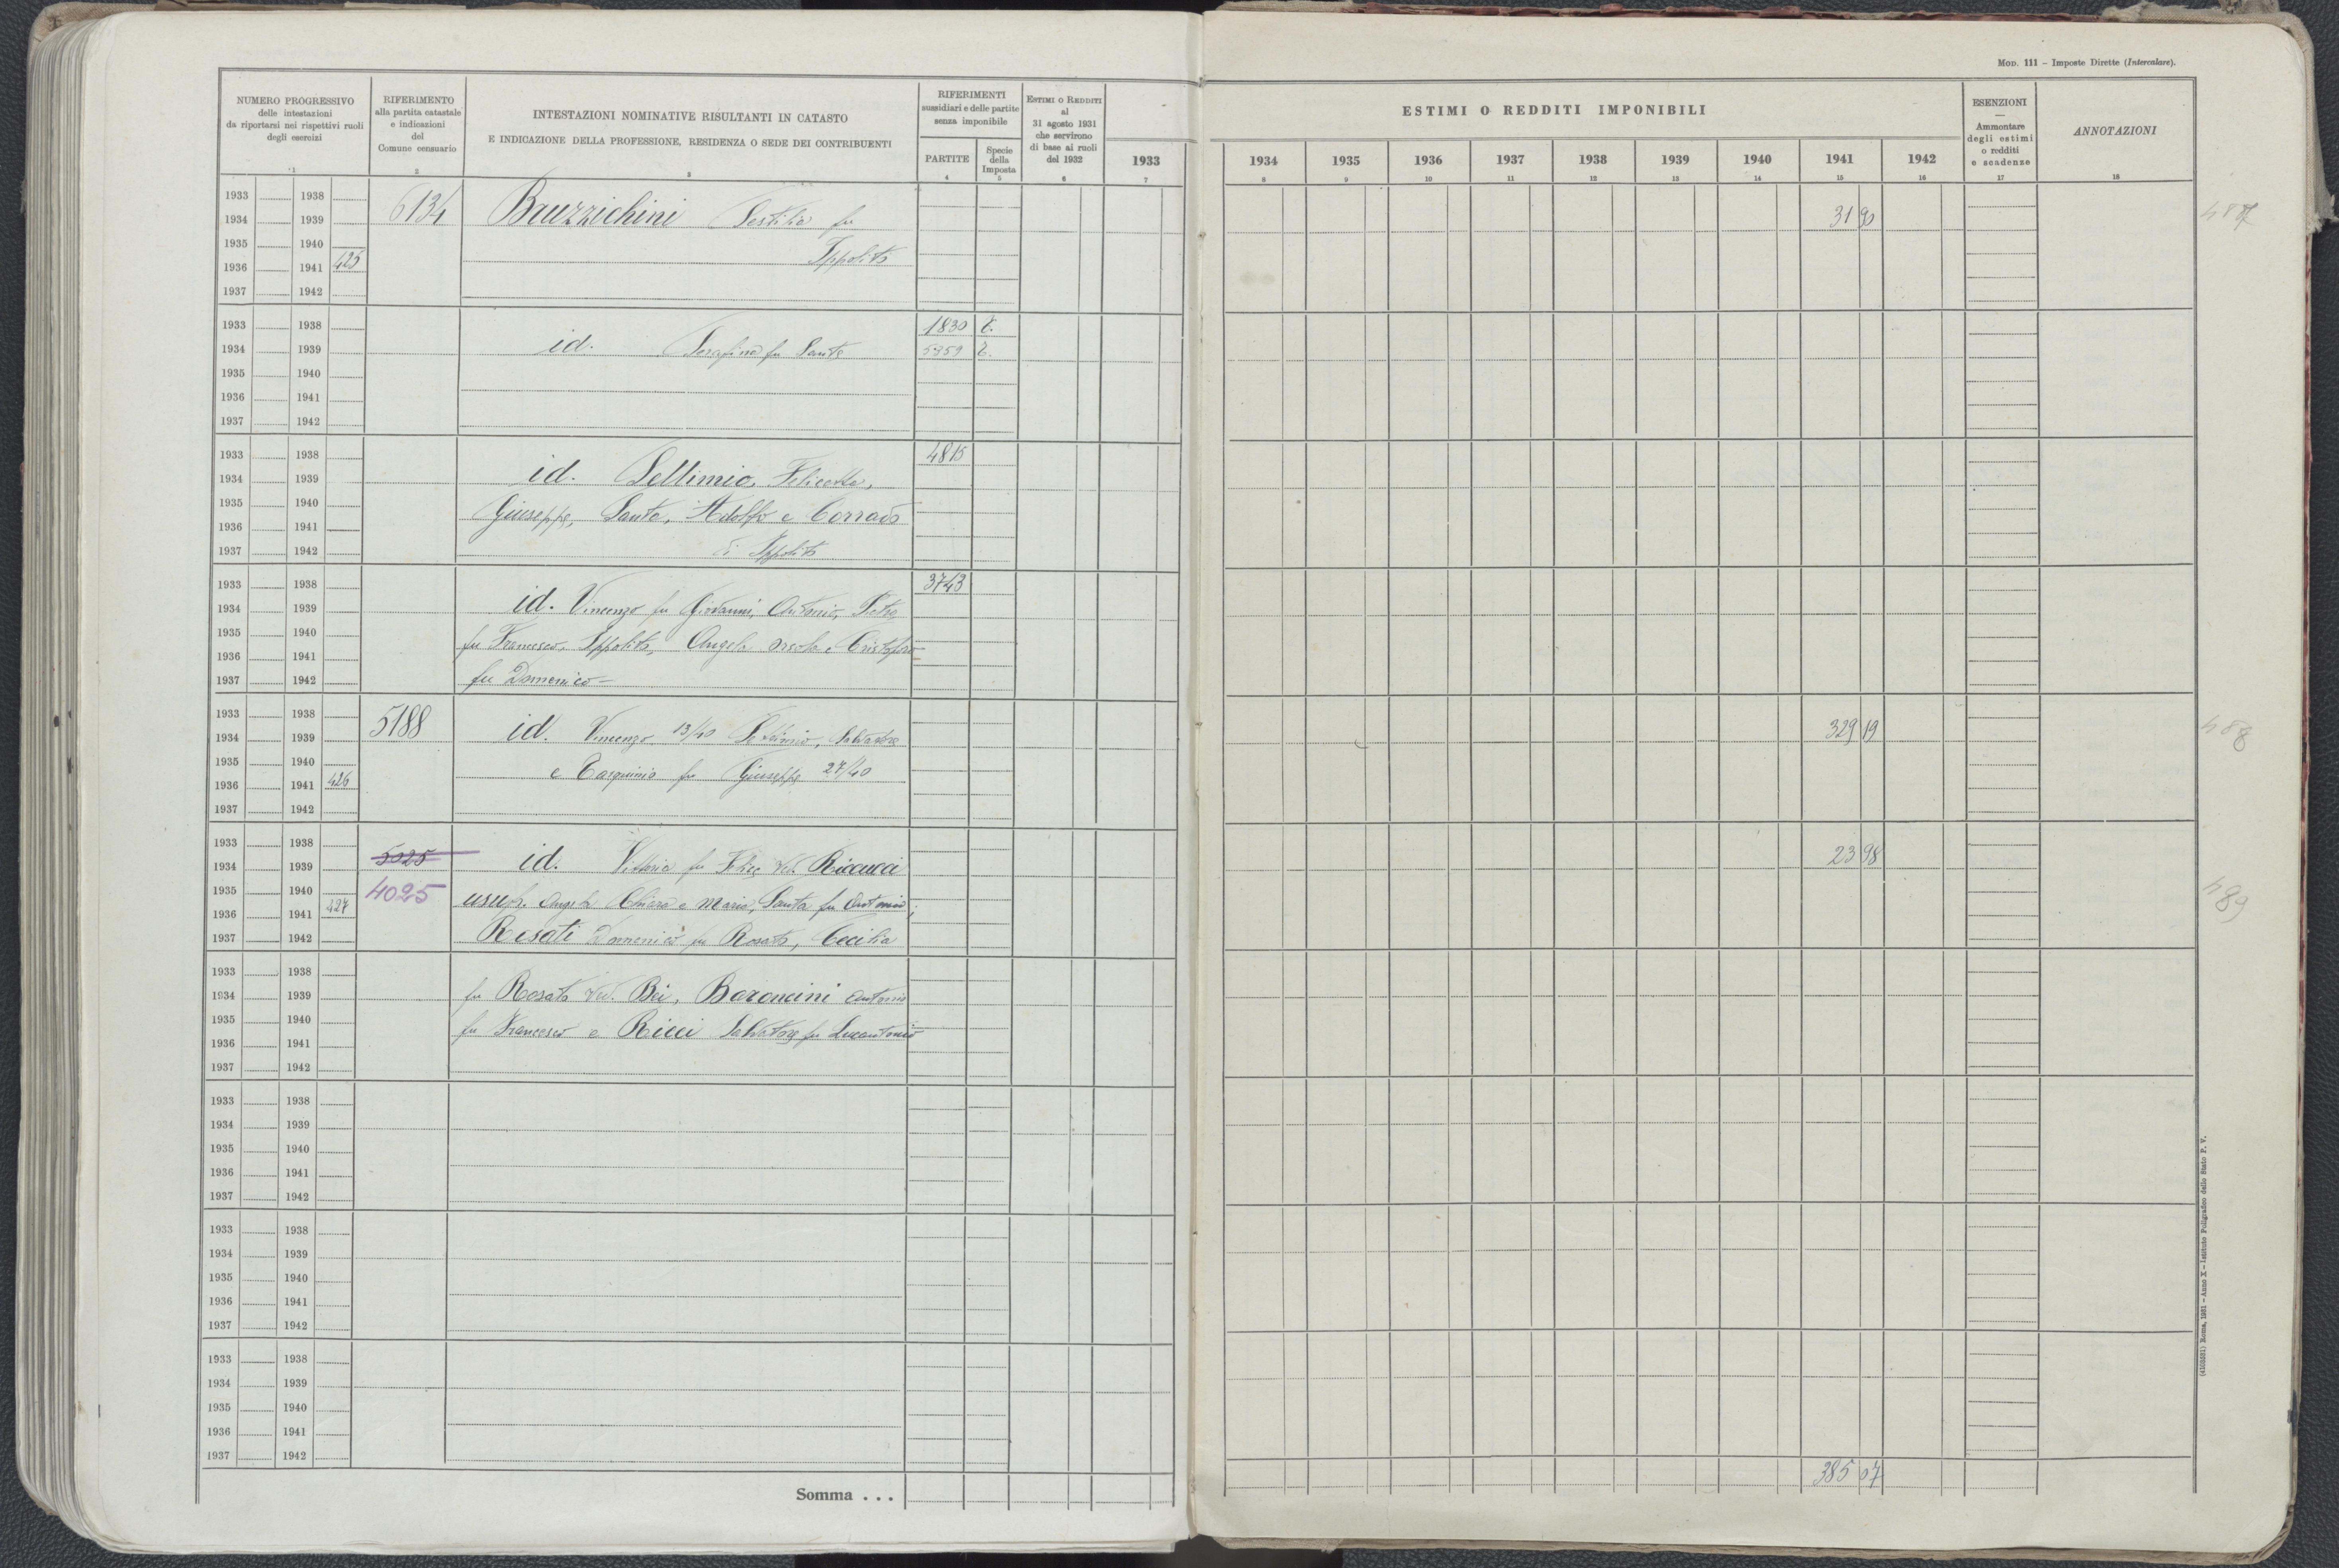 MOD. 111 – Imposte Dirette (Intercalare).
NUMERO PROGRESSIVO
delle intestazioni
da riportarsi nei rispettivi ruoli
degli esercizi
1
RIFERIMENTO
alla partita catastale
e indicazioni
del
Comune censuario
2
INTESTAZIONI NOMINATIVE RISULTANTI IN CATASTO
E INDICAZIONE DELLA PROFESSIONE, RESIDENZA O SEDE DEI CONTRIBUENTI
3
RIFERIMENTI
sussidiari e delle partite
senza imponibile
PARTITE
4
Specie
della
Imposta
5
ESTIMI O REDDITI
al
31 agosto 1931
che servirono
di base ai ruoli
del 1932
6
1933
7
ESTIMI O REDDITI IMPONIBILI
1934 1935 1936 1937 1938 1939 1940 1941 1942
8 9 10 11 12 13 14 15 16
ESENZIONI
—
Ammontare
degli estimi
o redditi
e scadenze
17
ANNOTAZIONI
18
1933 1938
1934 1939 6134 Bruzzichini Sestilia fu 31 90 487
1935 1940
1936 1941 425 Ippolito
1937 1942
1933 1938 1830 t.
1934 1939 id. Serafino fu Sante 5359 t.
1935 1940
1936 1941
1937 1942
1933 1938 4815
1934 1939 id. Settimio, Felicetta,
1935 1940 Giuseppe, Sante, Adolfo e Corrado
1936 1941
1937 1942 di Ippolito
1933 1938 3743
1934 1939 id. Vincenzo fu Giovanni, Antonio, Pietro
1935 1940 fu Francesco, Ippolito, Angela e Cristofaro
1936 1941
1937 1942 fu Domenico –
1933 1938 5188
1934 1939 id. Vincenzo 13/40 Settimio, Salvatore 329 19 488
1935 1940 e Tarquinio fu Giuseppe 27/40
1936 1941 426
1937 1942
1933 1938 5025
1934 1939 id. Vittoria fu Felice ved. Riccucci 23 98
1935 1940 4025
1936 1941 427 usufr. Angela Chiara e Maria, Santa fu Antonio; 489
1937 1942 Rosati Domenico fu Rosato, Cecilia
1933 1938
1934 1939 fu Rosato ved. Bei, Baroncini Antonio
1935 1940 fu Francesco e Ricci Salvatore fu Lucantonio
1936 1941
1937 1942
1933 1938
1934 1939
1935 1940
1936 1941
1937 1942
1933 1938
1934 1939
1935 1940
1936 1941
1937 1942
1933 1938
1934 1939
1935 1940
1936 1941
1937 1942
Somma . . . 385 07
(4103531) Roma, 1931 – Anno X – Istituto Poligrafico dello Stato P. V.